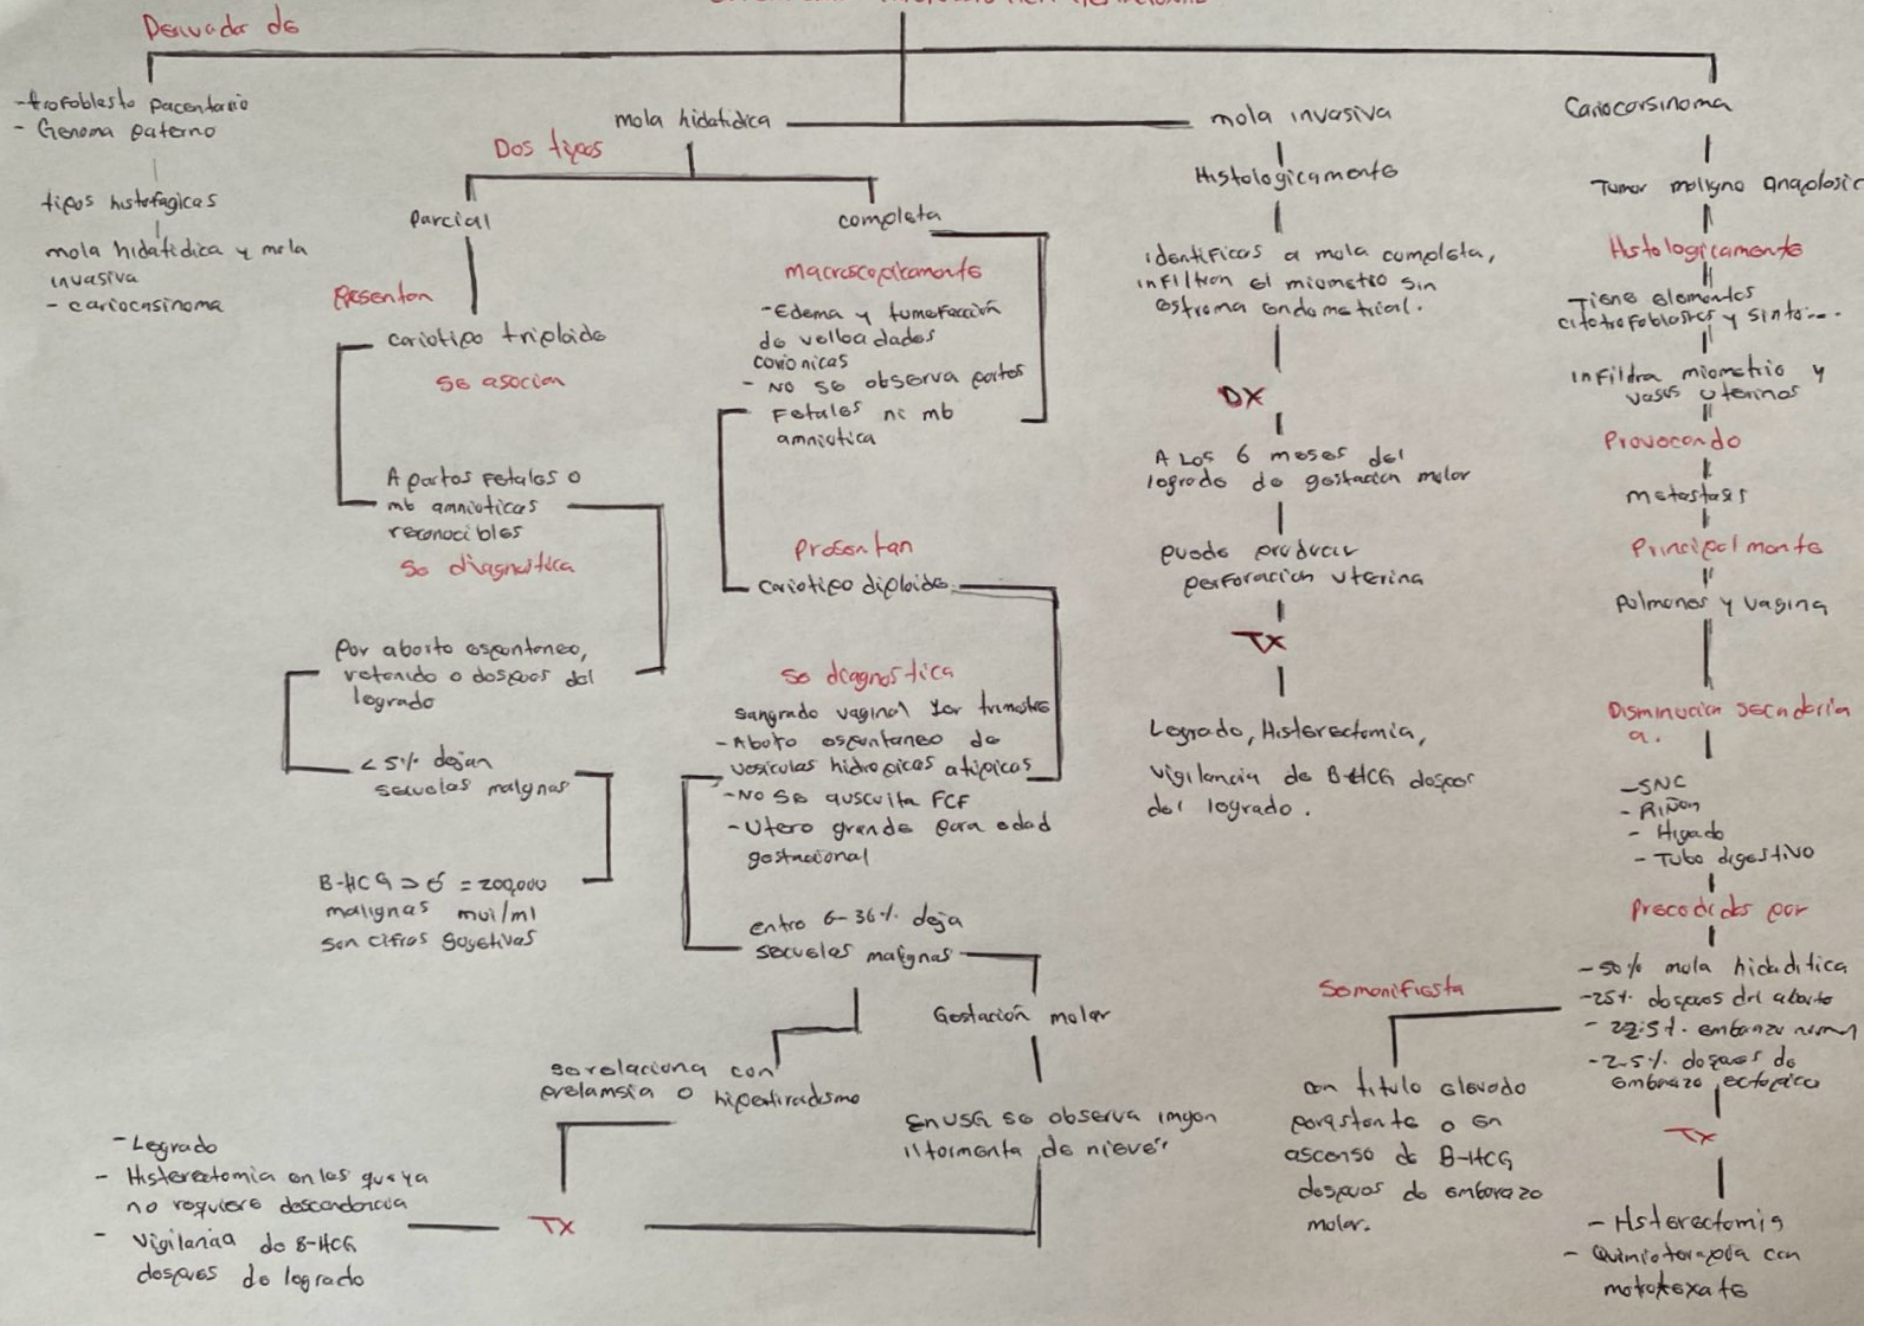 Derivada de
-trofoblasto pacentario
- Genoma paterno
tipos histofagicas
mola hidatidica y mola
invasiva
- cariocasinoma
mola hidatidica
Dos tipos
Parcial
Presentan
cariotipo triploide
se asocian
A partes fetales o
mb amnioticas
reconocibles
Se diagnostica
Por aborto espontaneo,
retenido o despues del
legrado
<5% dejan
secuelas malignas
B-HCG > ó = 200,000
malignas mui/ml
son cifras
completa
macroscopicamente
-Edema y tumefacción
de
corionicas
- NO se observa partes
Fetales ni mb
amniotica
Presentan
Cariotipo diploide
Se diagnostica
sangrado vaginal 1er trimestre
-Aboto espontaneo de
vesiculas hidropicas atipicas
-No se ausculta FCF
-Utero grande para edad
gestacional
entre 6-36% deja
secuelas malignas
se relaciona con
prelamsia o
Gestación molar
En USG se observa
"tormenta de nieve"
TX
-Legrado
- Histerectomia en las que ya
no requiere descendencia
- Vigilancia de B-HCG
despues de legrado
mola invasiva
Histologicamente
identificas a mola completa,
infiltran el miometro sin
estroma endometrial.
DX
A Los 6 meses del
legrado de gestacion molar
puede producir
perforación uterina
TX
Legrado, Histerectomia,
vigilancia de B-HCG
del legrado.
Cariocarsinoma
Tumor maligno
Histologicamente
Tiene elementos
y sinto...
infildra miometrio y
vasos uterinos
Provocando
metastasis
Principalmente
Pulmones y vagina
Disminucion secundaria
a.
-SNC
- Riñon
- Higado
- Tubo digestivo
Precedidos por
-50% mola hidaditica
-25% despues del aborto
- 22.5%. embarazo
-2.5% despues de
embarazo ectopico
Se manifiesta
con titulo elevado
o en
ascenso de B-HCG
despues de embarazo
molar.
TX
- Hsterectomia
- Quimioterapia con